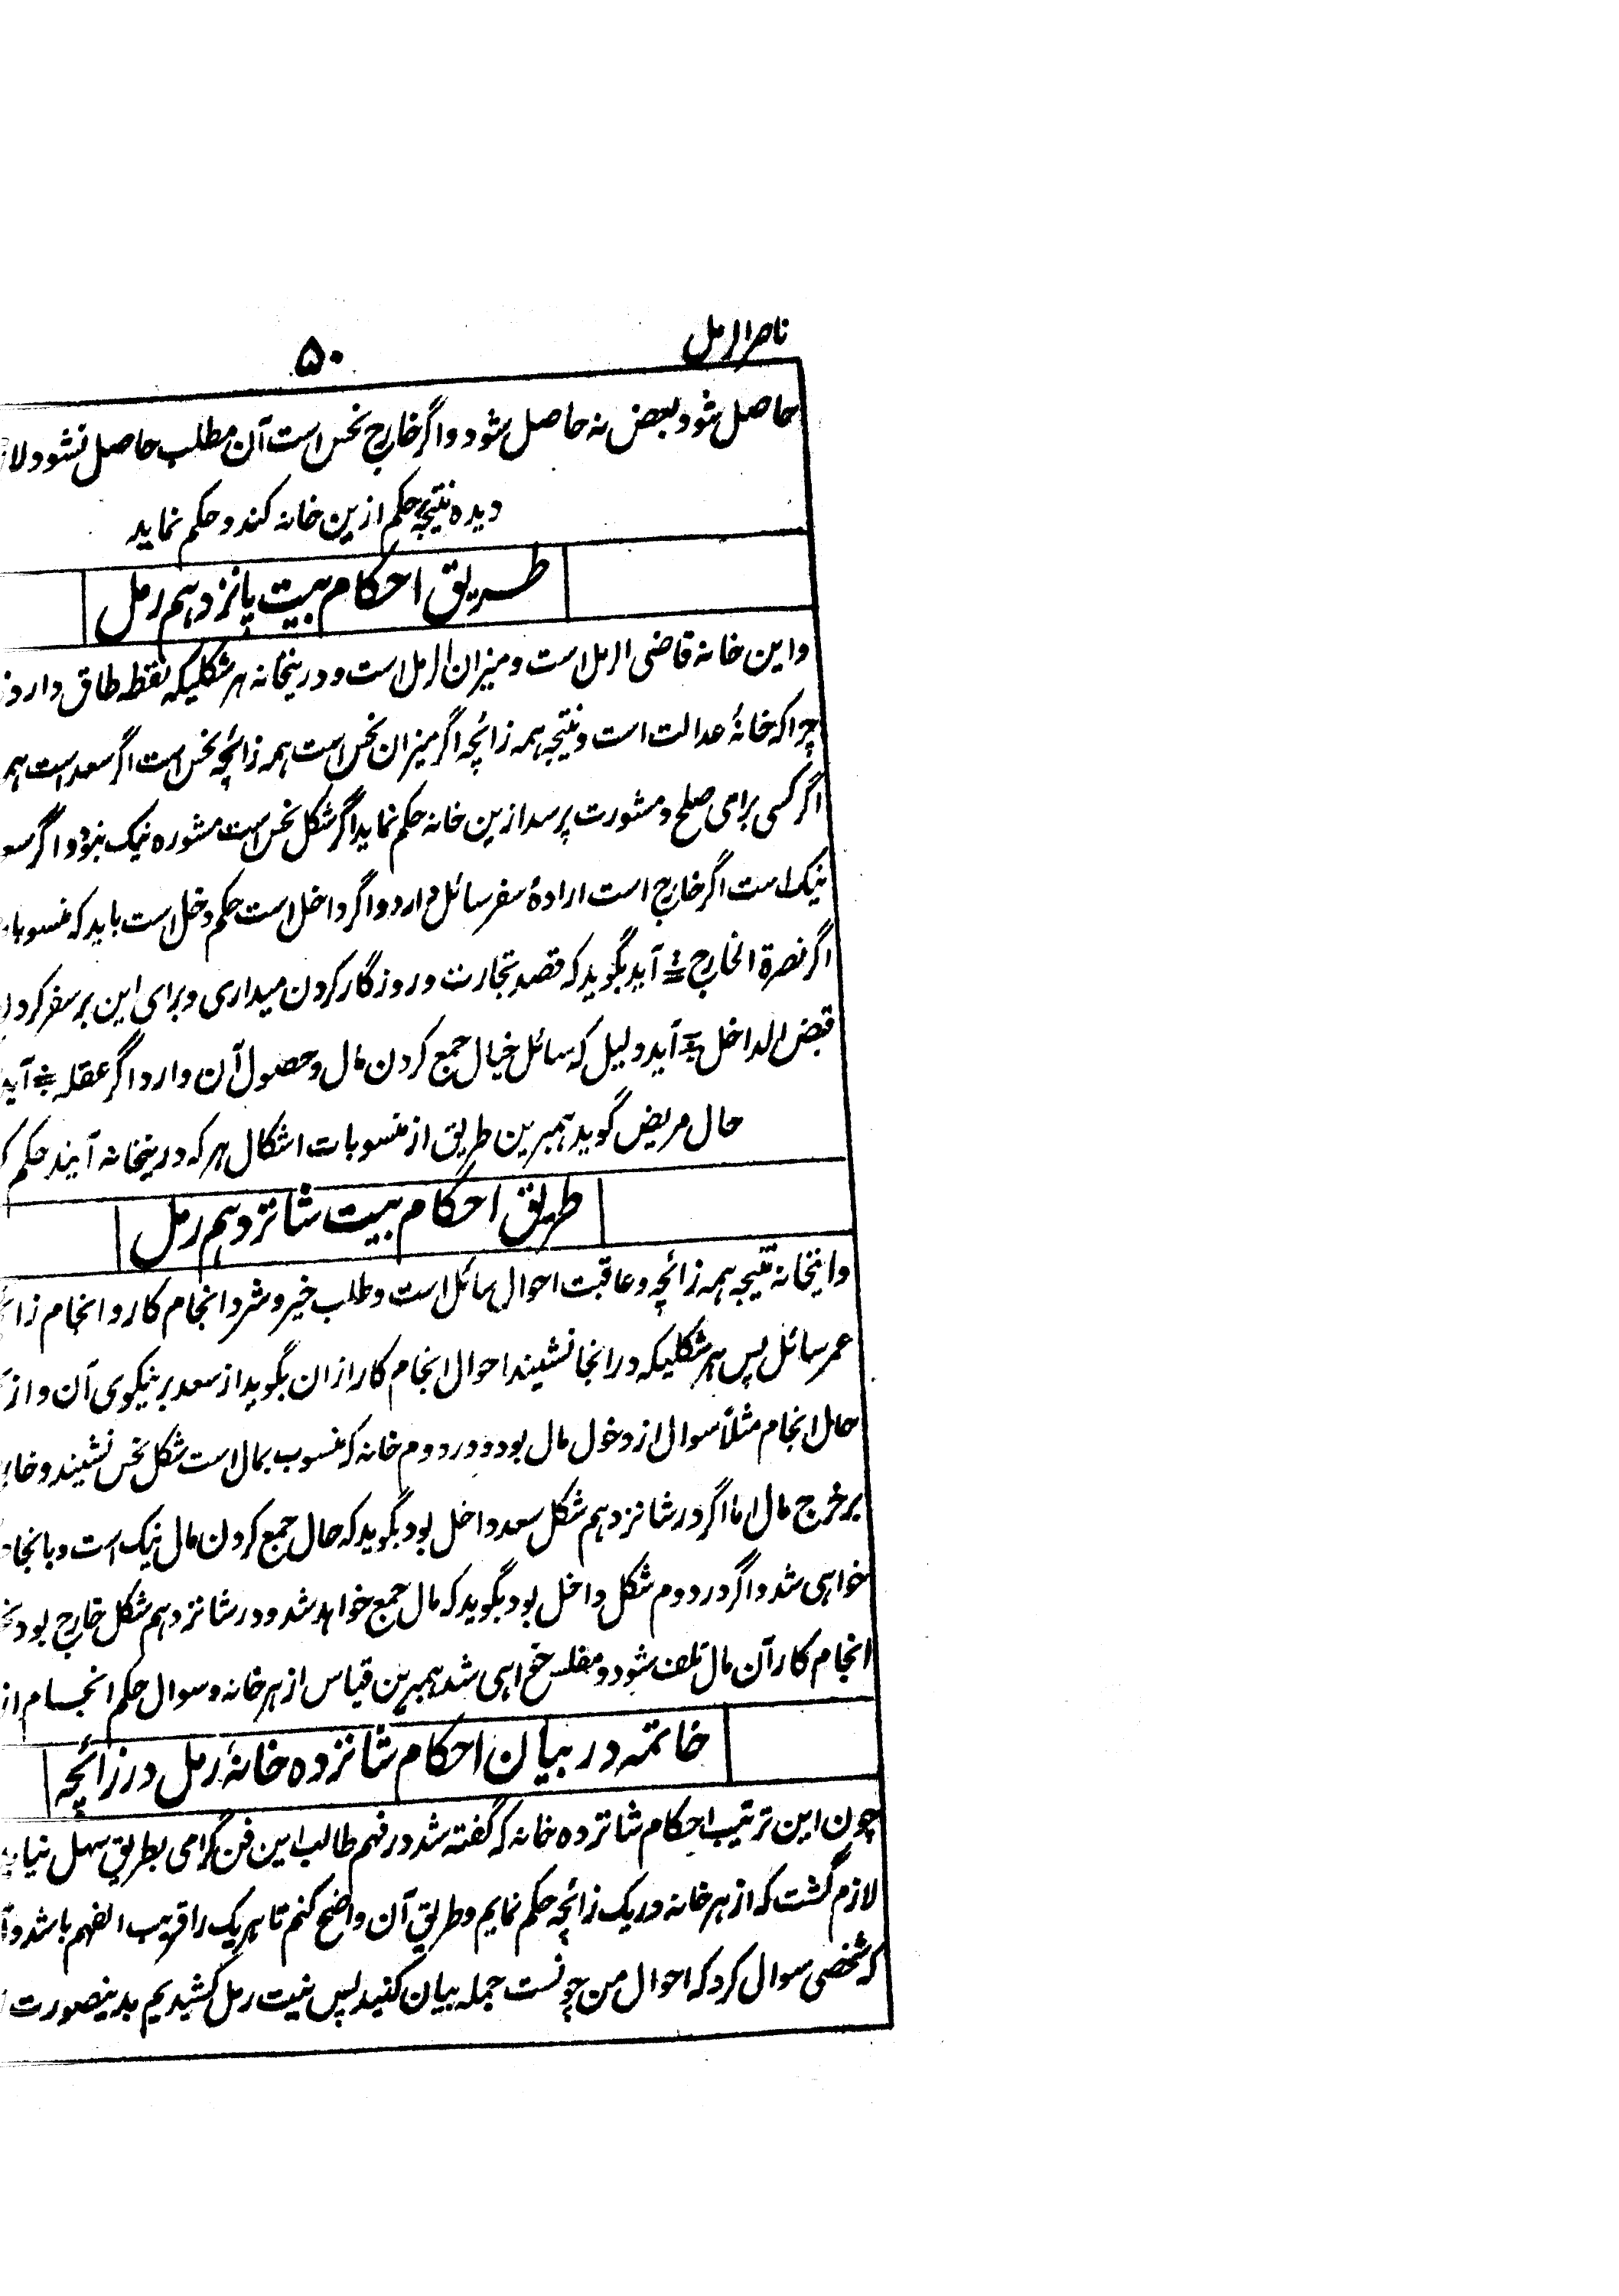 ناصر الرمل
۵۰
حاصل شود بعض نه حاصل شود و اگر خارج نحس است آن مطلب حاصل نشود
دیده نتیجه حکم ازین خانه کند و حکم نماید
طریق احکام بیت پانزدهم رمل
و این خانه قاضی الرمل است و میزان الرمل است و درینخانه هر شکلیکه نقطه طاق دارد
چراکه خانهٔ عدالت است و نتیجه همه زائچه اگر میزان نحس است همه زائچه نحس است اگر سعد است
اگر کسی برای صلح و مشورت پرسد ازین خانه حکم نماید اگر شکل نحس است مشوره نیک نبود و اگر
نیک است اگر خارج است ارادهٔ سفر سائل دارد و اگر داخل است حکم دخل است باید که
اگر نصرة الخارج آید بگوید که قصد تجارت و روزگار کردن میداری و برای این بر سفر
قبض الداخل آید دلیل که سائل خیال جمع کردن مال و حصول آن دارد اگر عقله آید
حال مریض گوید همبرین طریق از منسوبات اشکال هر که درینخانه آیند حکم
طریق احکام بیت شانزدهم رمل
و اینخانه نتیجه همه زائچه و عاقبت احوال سائل است و طلب خیر و شر و انجام کار و انجام
عمر سائل پس هر شکلیکه درانجا نشیند احوال انجام کار ازان بگوید از سعد بر نیکوی آن و از
حال انجام مثلاً سوال از دخول مال بود و در دوم خانه که منسوب بمال است شکل نحس نشیند و
بر خرج مال اما اگر در شانزدهم شکل سعد داخل بود بگوید که حال جمع کردن مال نیک است و
خواهی شد و اگر در دوم شکل داخل بود بگوید که مال جمع خواهد شد و در شانزدهم شکل خارج بود
انجام کار آن مال تلف شود و مفلس خواهی شد همبرین قیاس از هر خانه و سوال حکم انجام از
خاتمه در بیان احکام شانزده خانهٔ رمل در زائچه
چون این ترتیب احکام شانزده خانه که گفته شد در فهم طالب این فن گرامی بطریق سهل
لازم گشت که از هر خانه در یک زائچه حکم نمایم و طریق آن واضح کنم تا هر یک را قریب الفهم باشد
که شخصی سوال کرد که احوال من چونست جمله بیان کنید پس نیت رمل کشیدیم بدینصورت